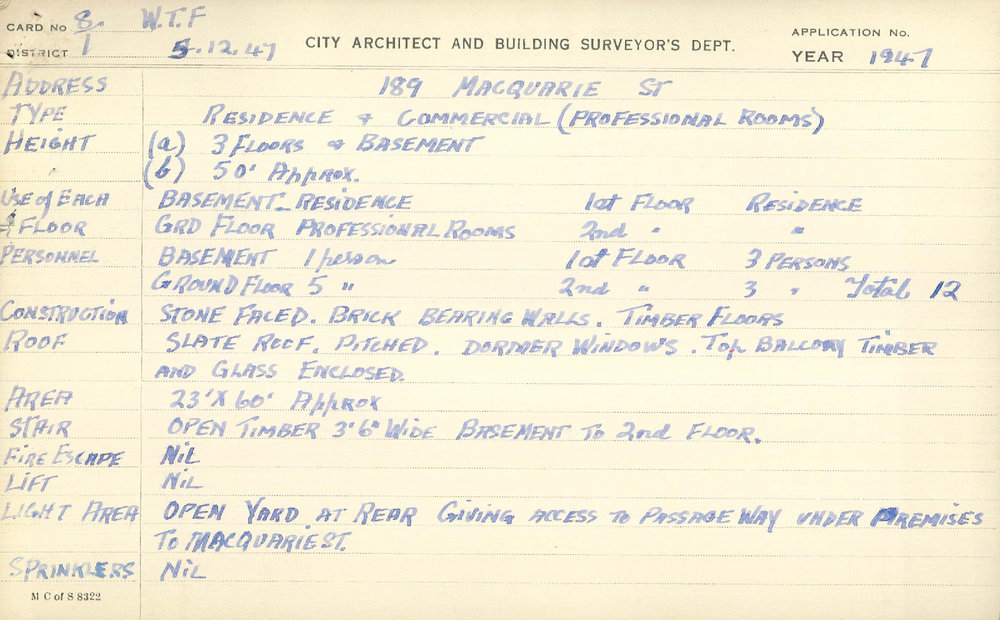 CARD No 8. W.T.F
DISTRICT 1 5.12.47 CITY ARCHITECT AND BUILDING SURVEYOR'S DEPT. APPLICATION No.
YEAR 1947
ADDRESS 189 MACQUARIE ST
TYPE RESIDENCE & COMMERCIAL (PROFESSIONAL ROOMS)
HEIGHT (a) 3 FLOORS & BASEMENT
" (b) 50' Approx.
USE of EACH BASEMENT - RESIDENCE 1st FLOOR RESIDENCE
FLOOR GRD FLOOR PROFESSIONAL ROOMS 2nd " "
PERSONNEL BASEMENT 1 person 1st FLOOR 3 PERSONS
GROUND FLOOR 5 " 2nd " 3 " Total 12
CONSTRUCTION STONE FACED. BRICK BEARING WALLS. TIMBER FLOORS
ROOF SLATE ROOF. PITCHED. DORMER WINDOWS. TOP BALCONY TIMBER
AND GLASS ENCLOSED.
AREA 23' X 60' Approx
STAIR OPEN TIMBER 3'6" WIDE BASEMENT TO 2nd FLOOR.
FIRE ESCAPE NIL
LIFT NIL
LIGHT AREA OPEN YARD AT REAR GIVING ACCESS TO PASSAGE WAY UNDER PREMISES
TO MACQUARIE ST.
SPRINKLERS NIL
M C of S 8322